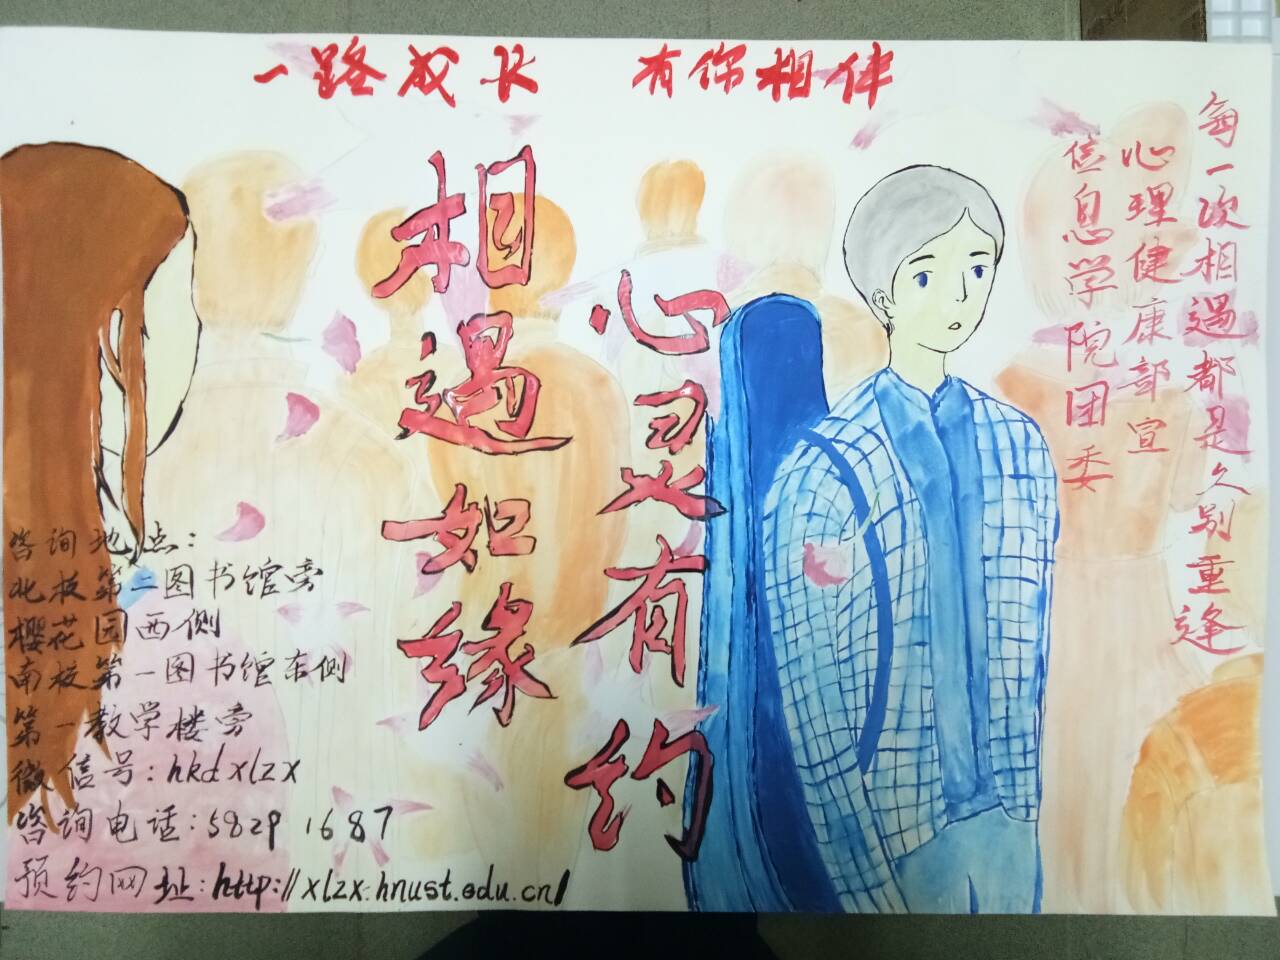 一路成长 有你相伴
每一次相遇都是久别重逢
心理健康部宣
信息学院团委
相遇如缘
心灵有约
咨询地点:
北校第二图书馆旁
樱花园西侧
南校第一图书馆东侧
第一教学楼旁
微信号:hkdxlzx
咨询电话:58291687
预约网址:http://xlzx.hnust.edu.cn/